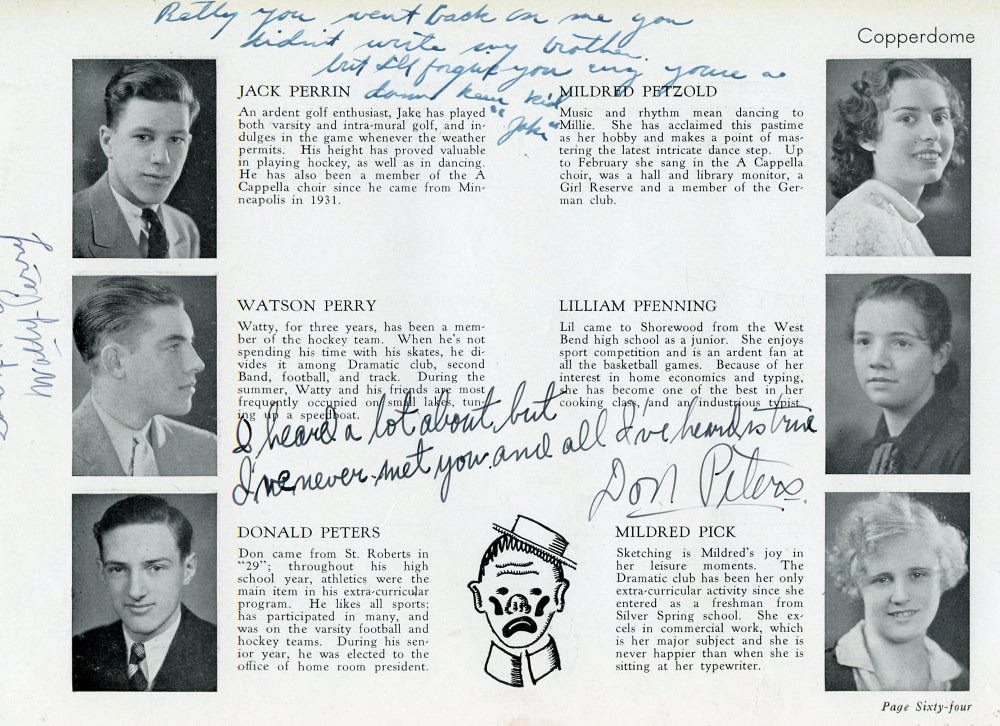 Copperdome
you went back on me you
didn't write my brother
but I'll forgive you
damn keen kid
"Jake"
JACK PERRIN
An ardent golf enthusiast, Jake has played
both varsity and intra-mural golf, and in-
dulges in the game whenever the weather
permits. His height has proved valuable
in playing hockey, as well as in dancing.
He has also been a member of the A
Cappella choir since he came from Min-
neapolis in 1931.
MILDRED PETZOLD
Music and rhythm mean dancing to
Millie. She has acclaimed this pastime
as her hobby and makes a point of mas-
tering the latest intricate dance step. Up
to February she sang in the A Cappella
choir, was a hall and library monitor, a
Girl Reserve and a member of the Ger-
man club.
Watty Perry
WATSON PERRY
Watty, for three years, has been a mem-
ber of the hockey team. When he's not
spending his time with his skates, he di-
vides it among Dramatic club, second
Band, football, and track. During the
summer, Watty and his friends are most
frequently occupied on small lakes, tun-
ing up a speedboat.
LILLIAM PFENNING
Lil came to Shorewood from the West
Bend high school as a junior. She enjoys
sport competition and is an ardent fan at
all the basketball games. Because of her
interest in home economics and typing,
she has become one of the best in her
cooking class, and an industrious typist.
I heard a lot about, but
I've never met you and all I've heard is true
Don Peters.
DONALD PETERS
Don came from St. Roberts in
"29"; throughout his high
school year, athletics were the
main item in his extra-curricular
program. He likes all sports;
has participated in many, and
was on the varsity football and
hockey teams. During his sen-
ior year, he was elected to the
office of home room president.
MILDRED PICK
Sketching is Mildred's joy in
her leisure moments. The
Dramatic club has been her only
extra-curricular activity since she
entered as a freshman from
Silver Spring school. She ex-
cels in commercial work, which
is her major subject and she is
never happier than when she is
sitting at her typewriter.
Page Sixty-four